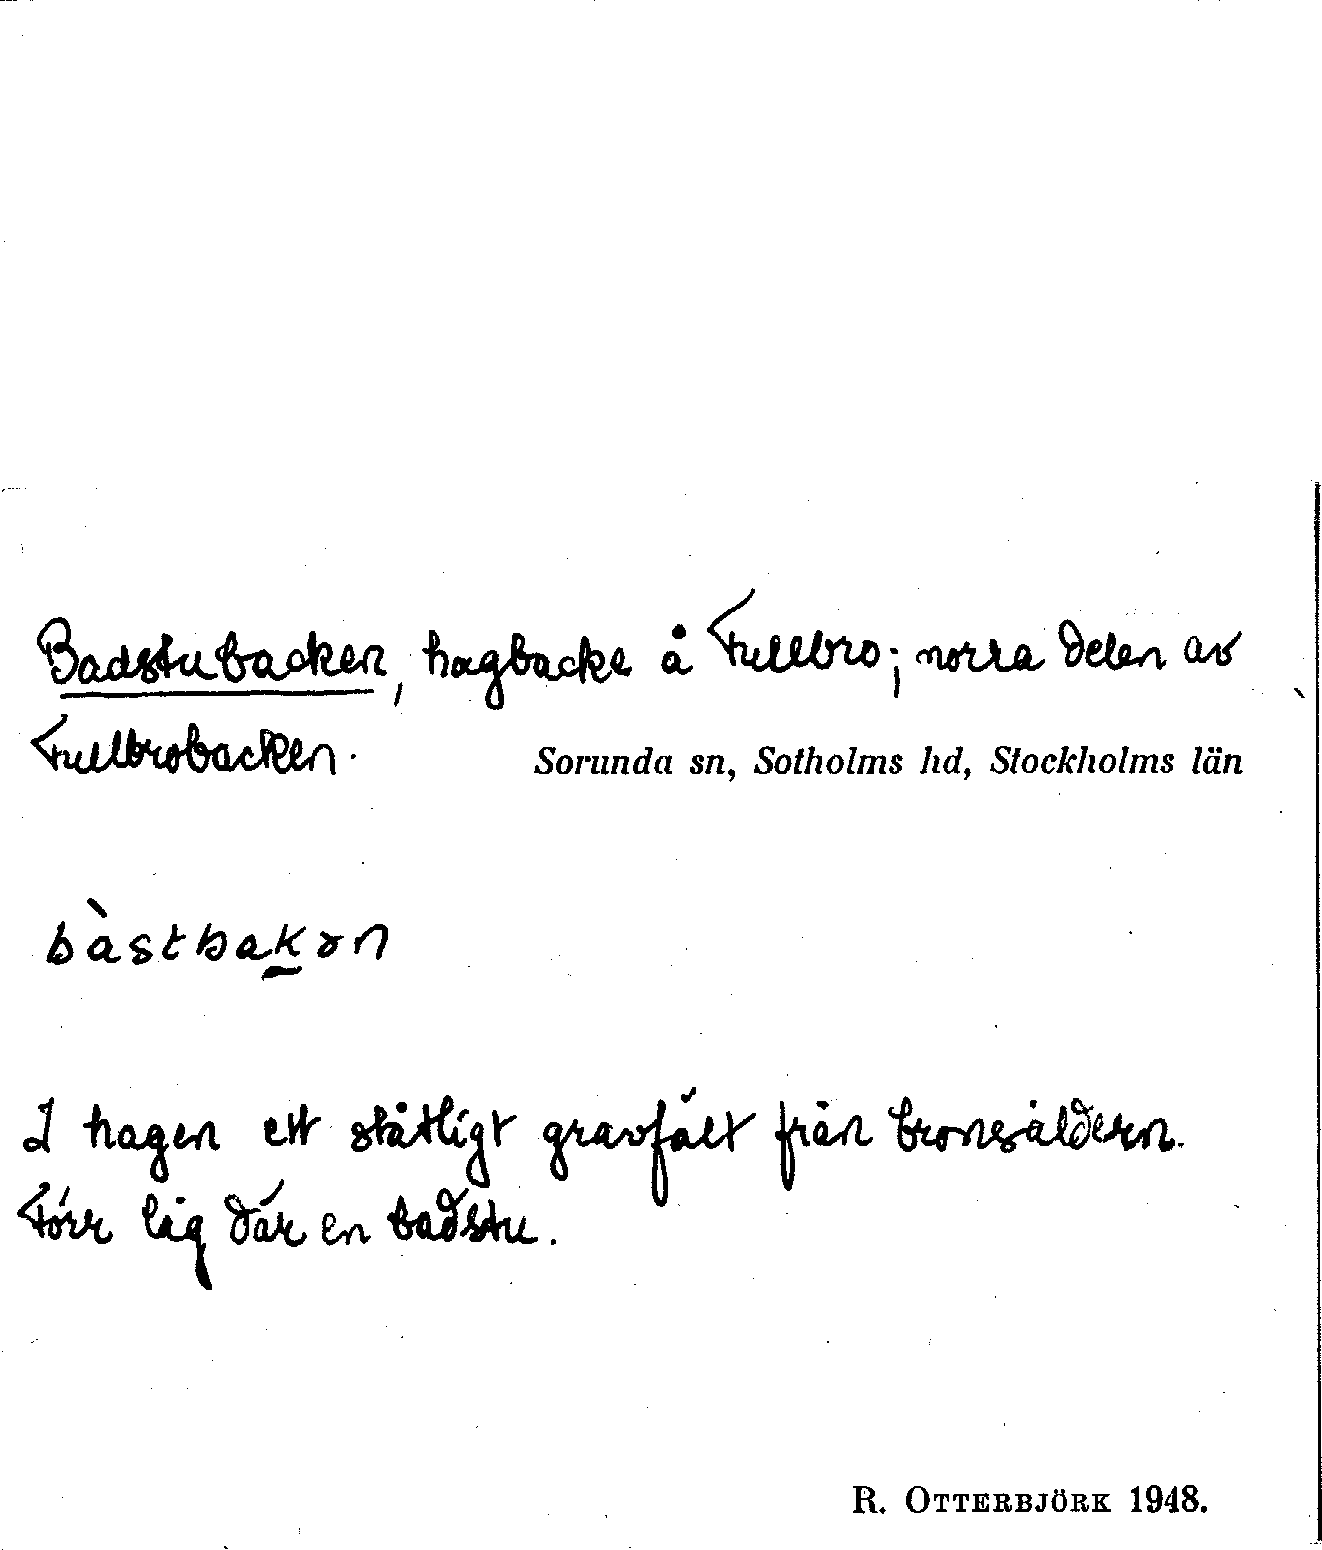 Badstubacken, hagbacke å Fullbro; norra delen av
Fullbrobacken. Sorunda sn, Sotholms hd, Stockholms län
bàstbak̲ən
I hagen ett ståtligt gravfält från bronsåldern.
Förr låg där en badstu.
R. OTTERBJÖRK 1948.